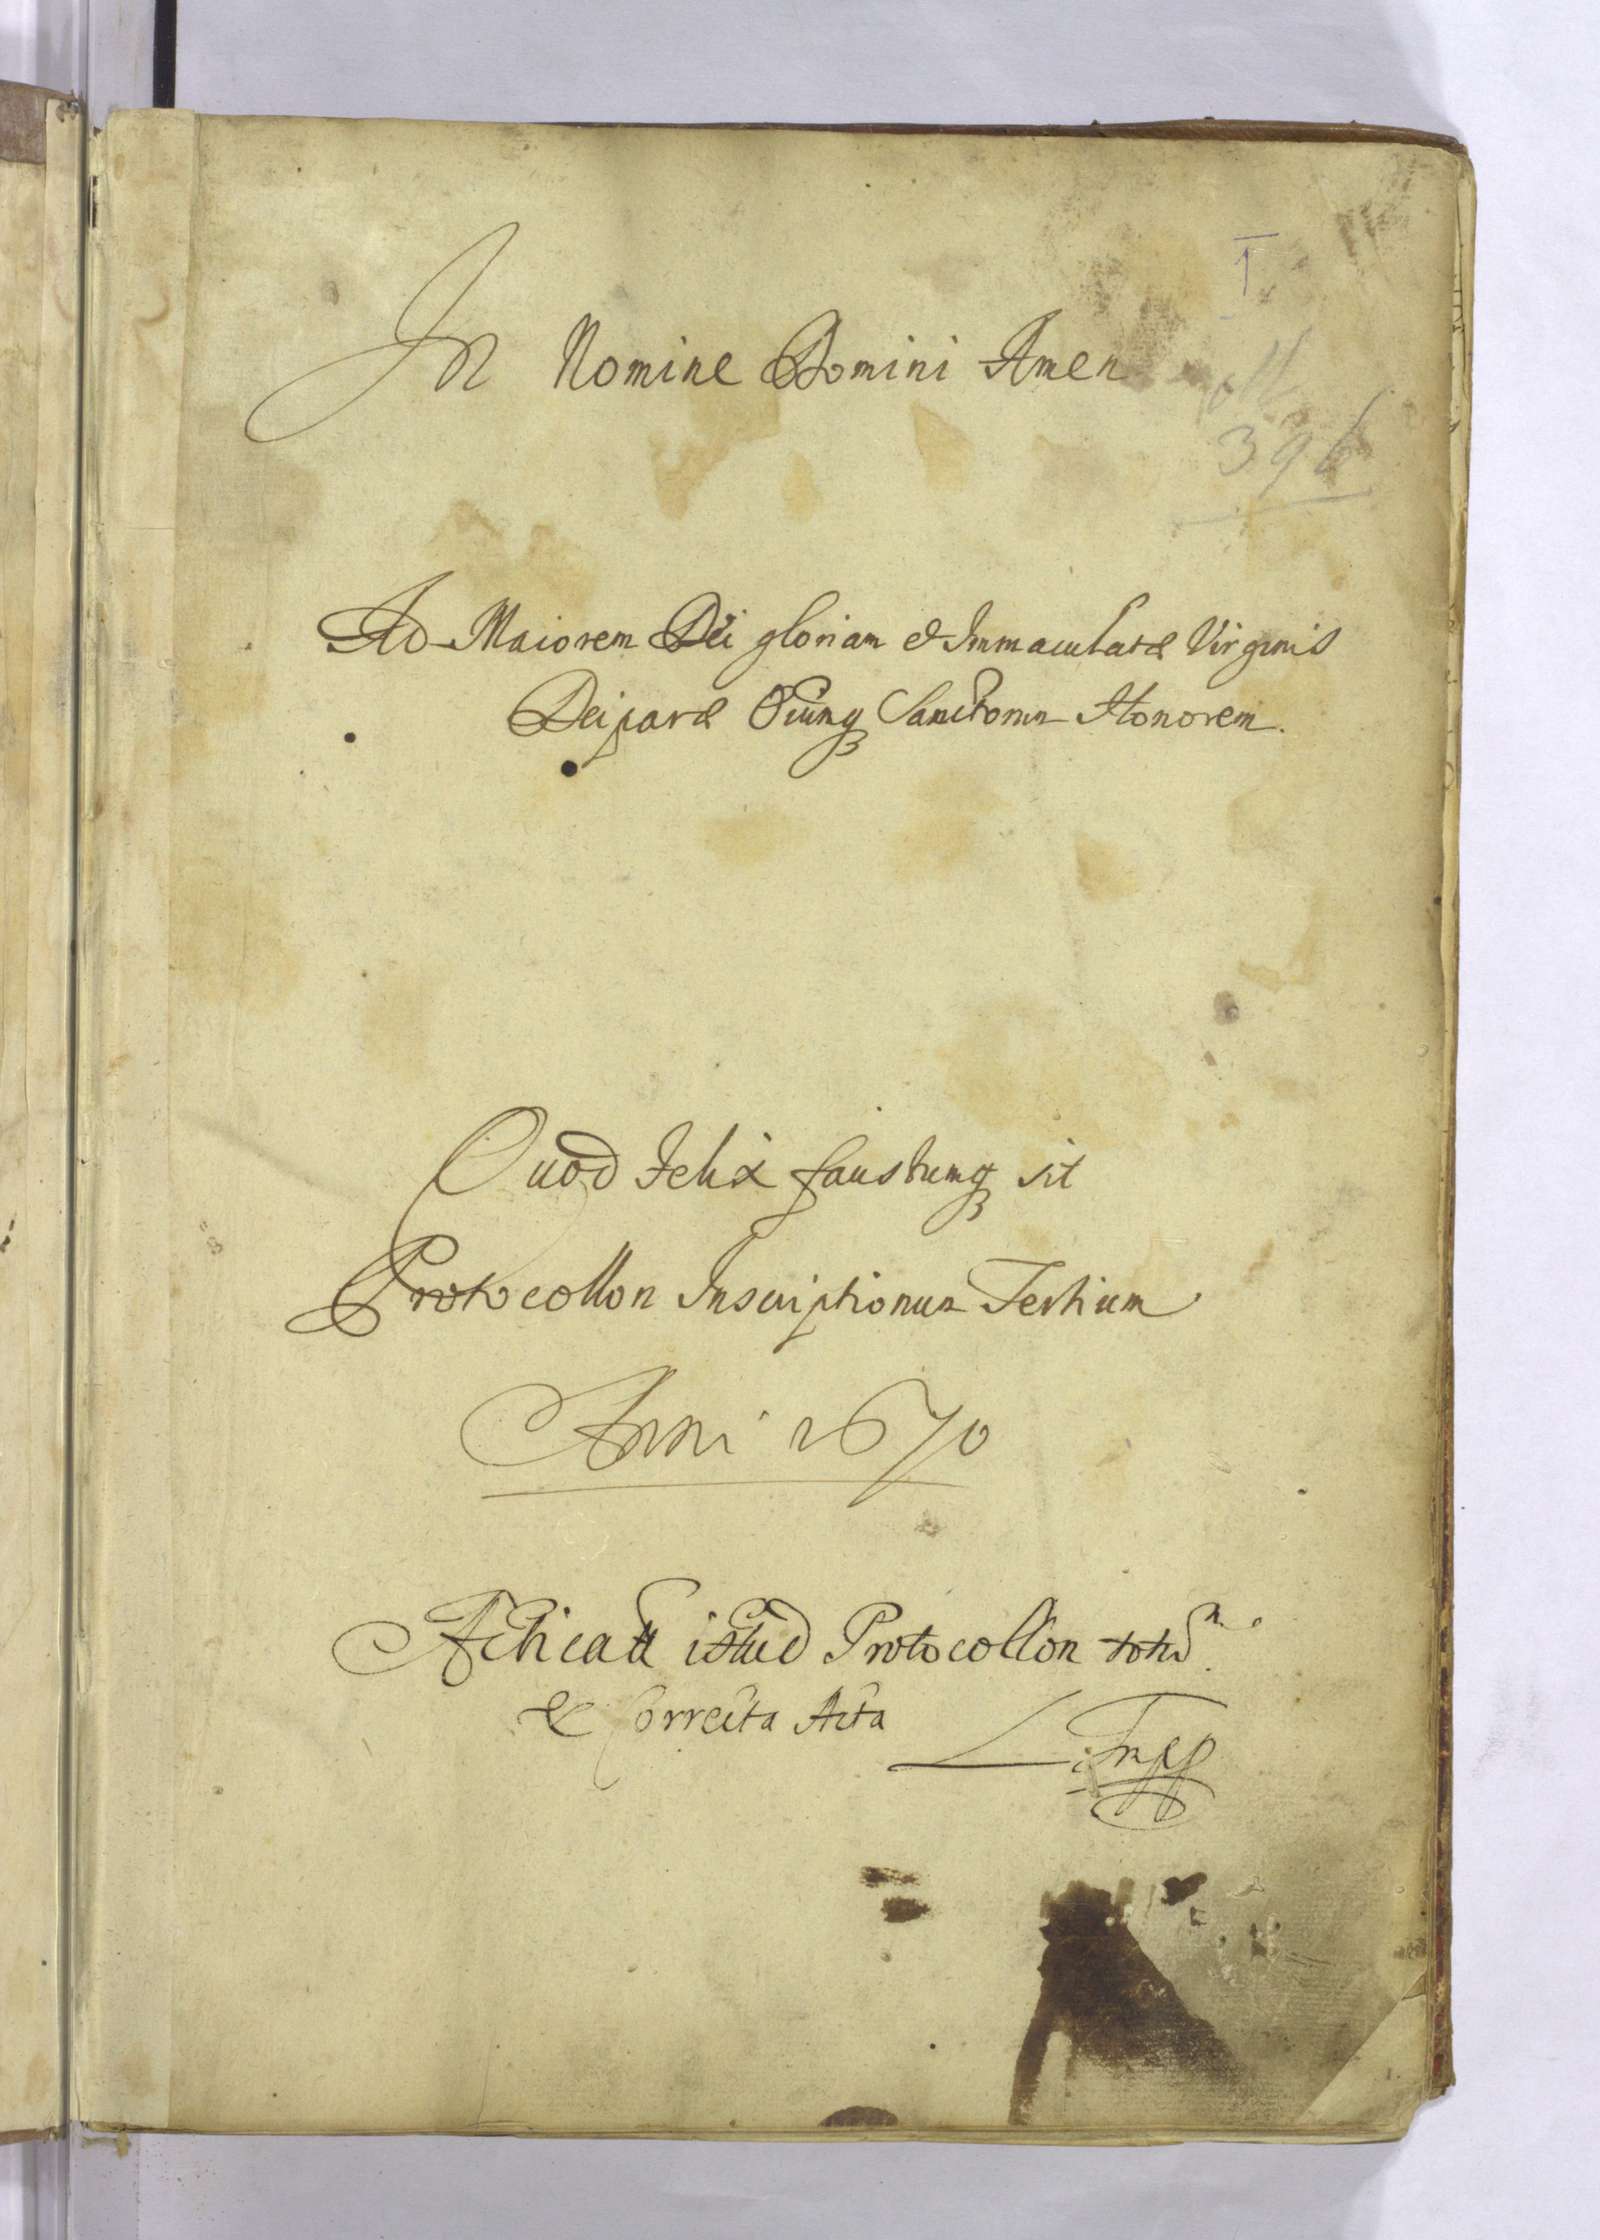 In Nomine Domini Amen
I
396
Ad Maiorem Dei gloriam et Immaculatæ Virginis
Deiparæ Oiumq; Sanctorum Honorem.
Quod Felix faustumq; sit
Protocollon Inscriptionum Tertium
Anni 1670
istud Protocollon
& Correcta Acta